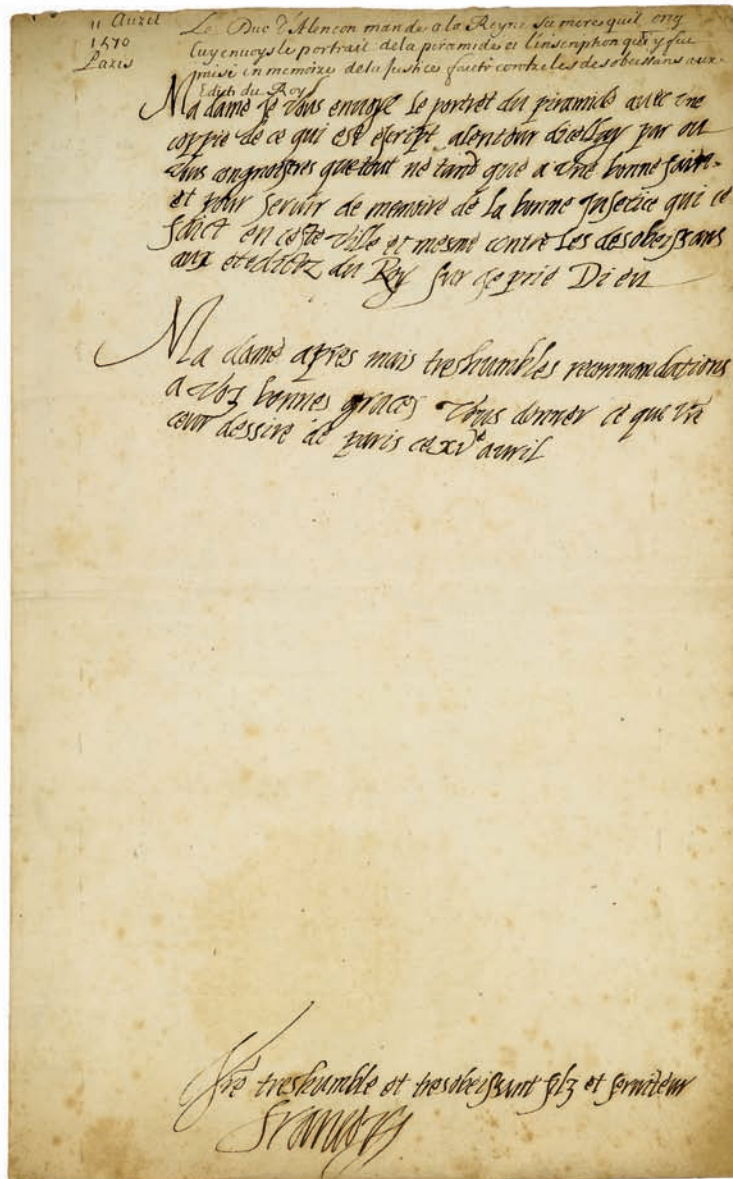 11 Auzil
1570
Pazis
Le Duc d'Alencon mande a la Reyne Sa mere quil
luy envoye le portrait dela piramide et linscription qui y fut
en memoize dela Justice faicte contze les desobeissans aux
Edits du Roy
Ma dame je vous envoye le portret du piramide avec une
coppie de ce qui est escript alentour dicelluy par ou
vous congnoistres que tout ne tand que a une bonne fain
et pour servir de memoire de la bonne Justice qui ce
faict en ceste ville et mesme contre les desobeissans
aux du Roy sur ce prie Dieu
Ma dame apres mais treshumbles recommandations
a voz bonnes graces vous donner ce que vre
ceur dessire de paris ce xve avril
Vre treshumble et tresobeissant filz et serviteur
Francoys